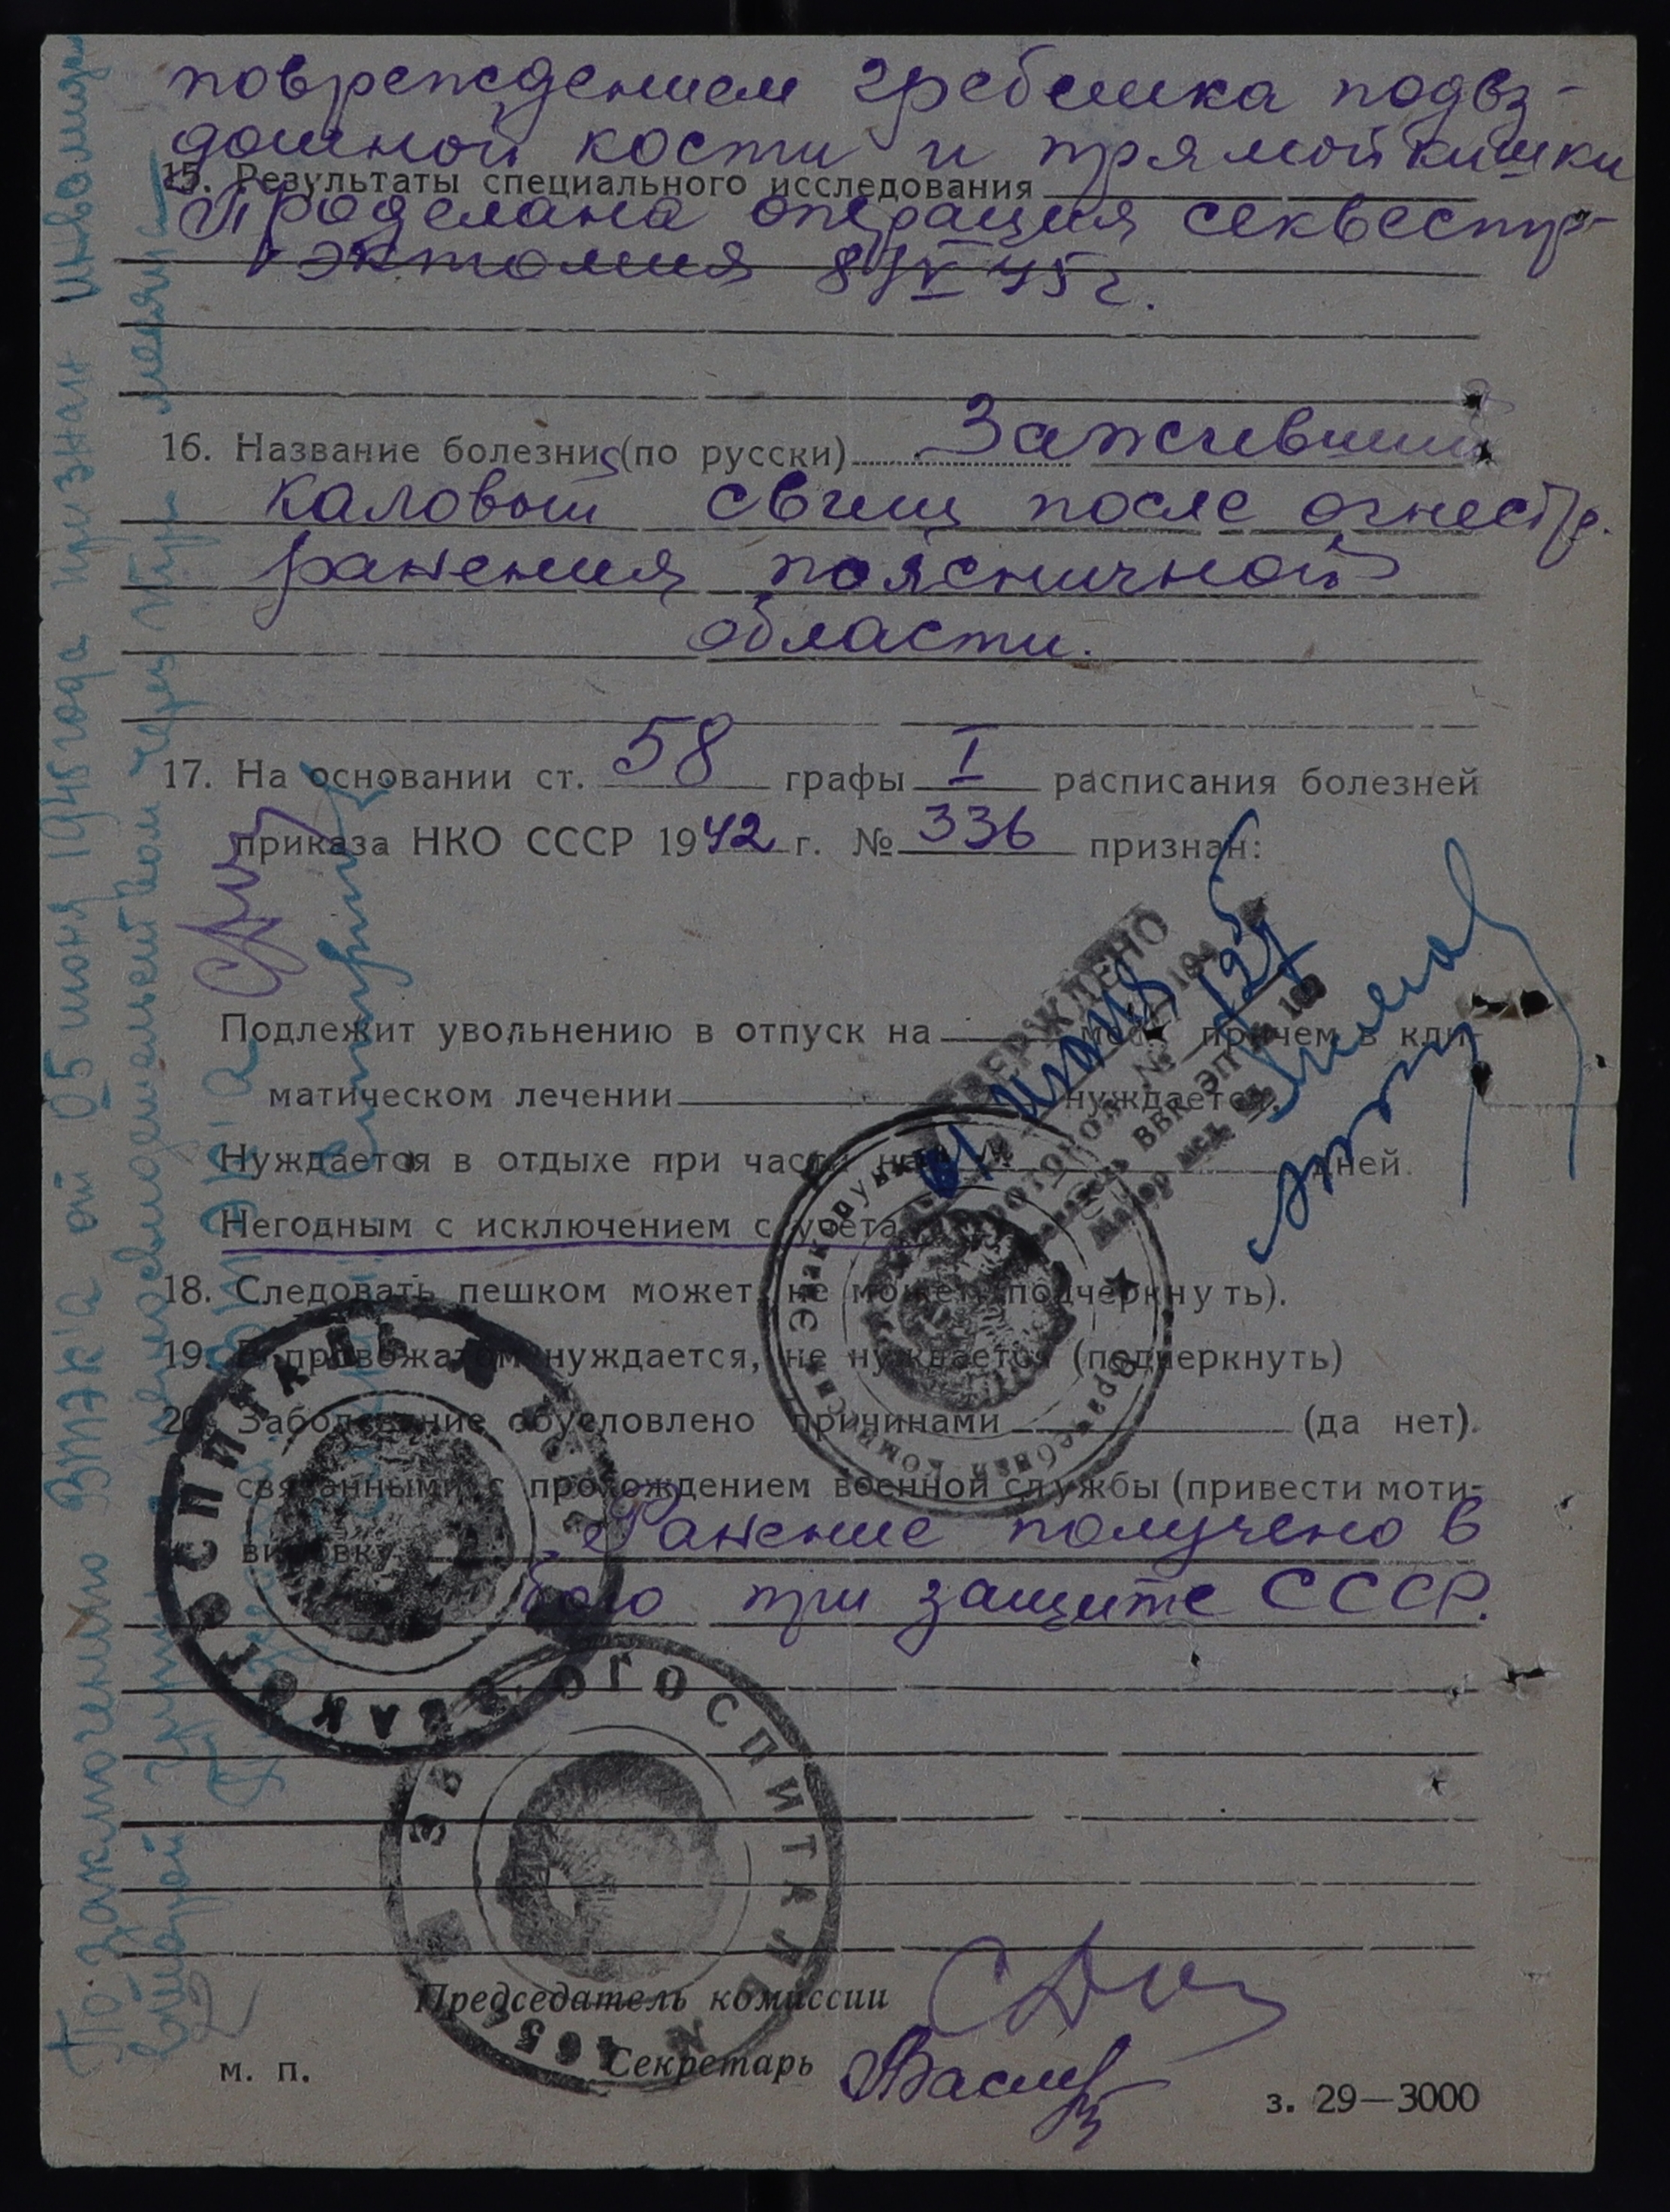 повреждением гребешка подвз-
дошной кости и прямой кишки
15. Результаты специального исследования
Проделана операция секвестр-
эктомия 8/IV 45 г.
16. Название болезни (по русски) Заживший
каловый свищ после огнестр.
ранения поясничной
области.
17. На основании ст. 58 графы I расписания болезней
приказа НКО СССР 1942 г. № 336 признан:
УТВЕРЖДЕНО
Подлежит увольнению в отпуск на мес. причем в кли-
матическом лечении нуждается.
Нуждается в отдыхе при части на дней.
Негодным с исключением с учета
18. Следовать пешком может, не может подчеркнуть).
19. В провожатом нуждается, не нуждается (подчеркнуть)
20. Заболевание обусловлено причинами (да нет).
связанными с прохождением военной службы (привести моти-
вировку Ранение получено в
бою при защите СССР.
Председатель комиссии
Секретарь
м. п.
з. 29—3000
ЭВАКОГОСПИТАЛЬ
ЭВАКОГОСПИТАЛЬ №
По заключению ВТЭК'а от 05 июня 1946 года признан инвалидом